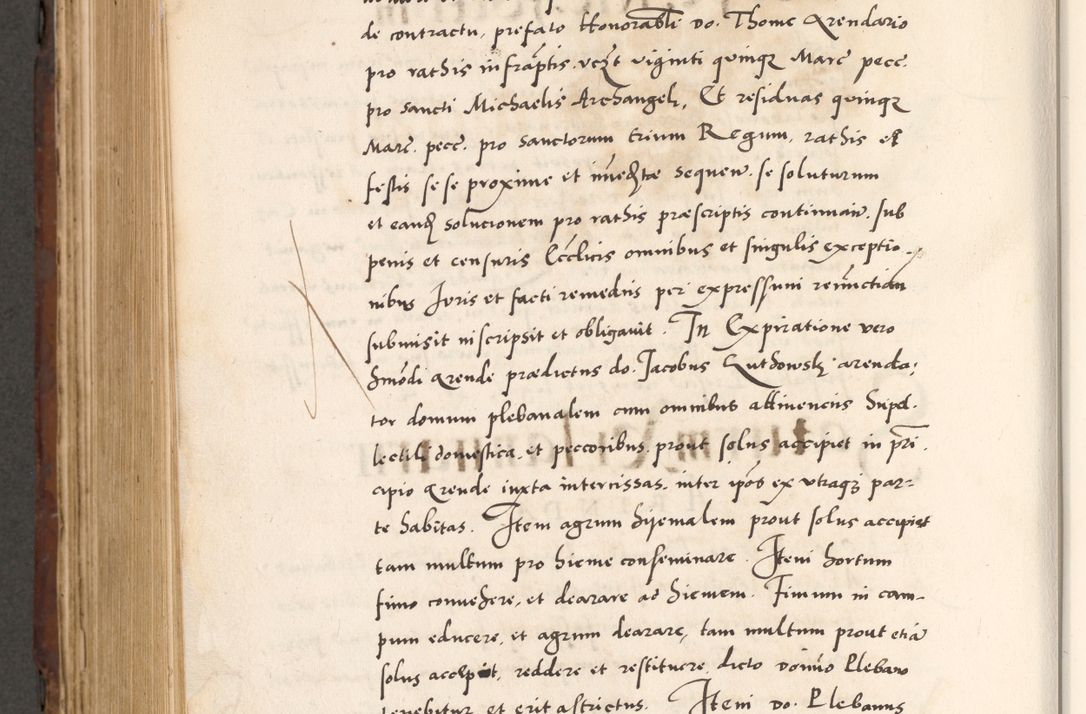 de contractu, prefato Honorabli do. Thome Arendario
pro rathis infraptis vczt viginti quinqz Marc pecc.
pro sancti Michaelis Archangeli, Et residuas quinqz
Marc. pecc. pro sanctorum trium Regum, rathis et
festis se se proxime et imedte sequen. se soluturum
et eand solucionem pro rathis præscriptis continuan. sub
penis et censuris Ecclicis omnibus et singulis exceptio-
nibus Juris et facti remediis per expressum renunctian
submisit inscripsit et obligauit. In Expiratione vero
hmodi Arende prædictus do. Jacobus arenda:
tor domum plebanalem cum omnibus attinenciis Supel.
lectili domestica, et peccoribus, prout solus accipiet in pri.
cipio Arende iuxta intercissas, inter ipos ex vtraqz par=
te habitas. Item agrum hijemalem prout solus accipiet
tam multum pro hieme conseminare. Item hortum
fimo conuehere, et dearare ad hiemem. Fimum in cam-
pum educere, et agrum dearare, tam multum prout etia
solus accepit, reddere et restituere, dicto domino Plebano
tenebitur et erit astrictus. Item do. Plebanus